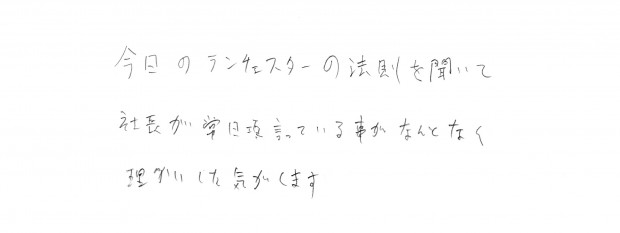 今日のランチェスターの法則を聞いて
社長が常日頃言っている事がなんとなく
理がいした気がします